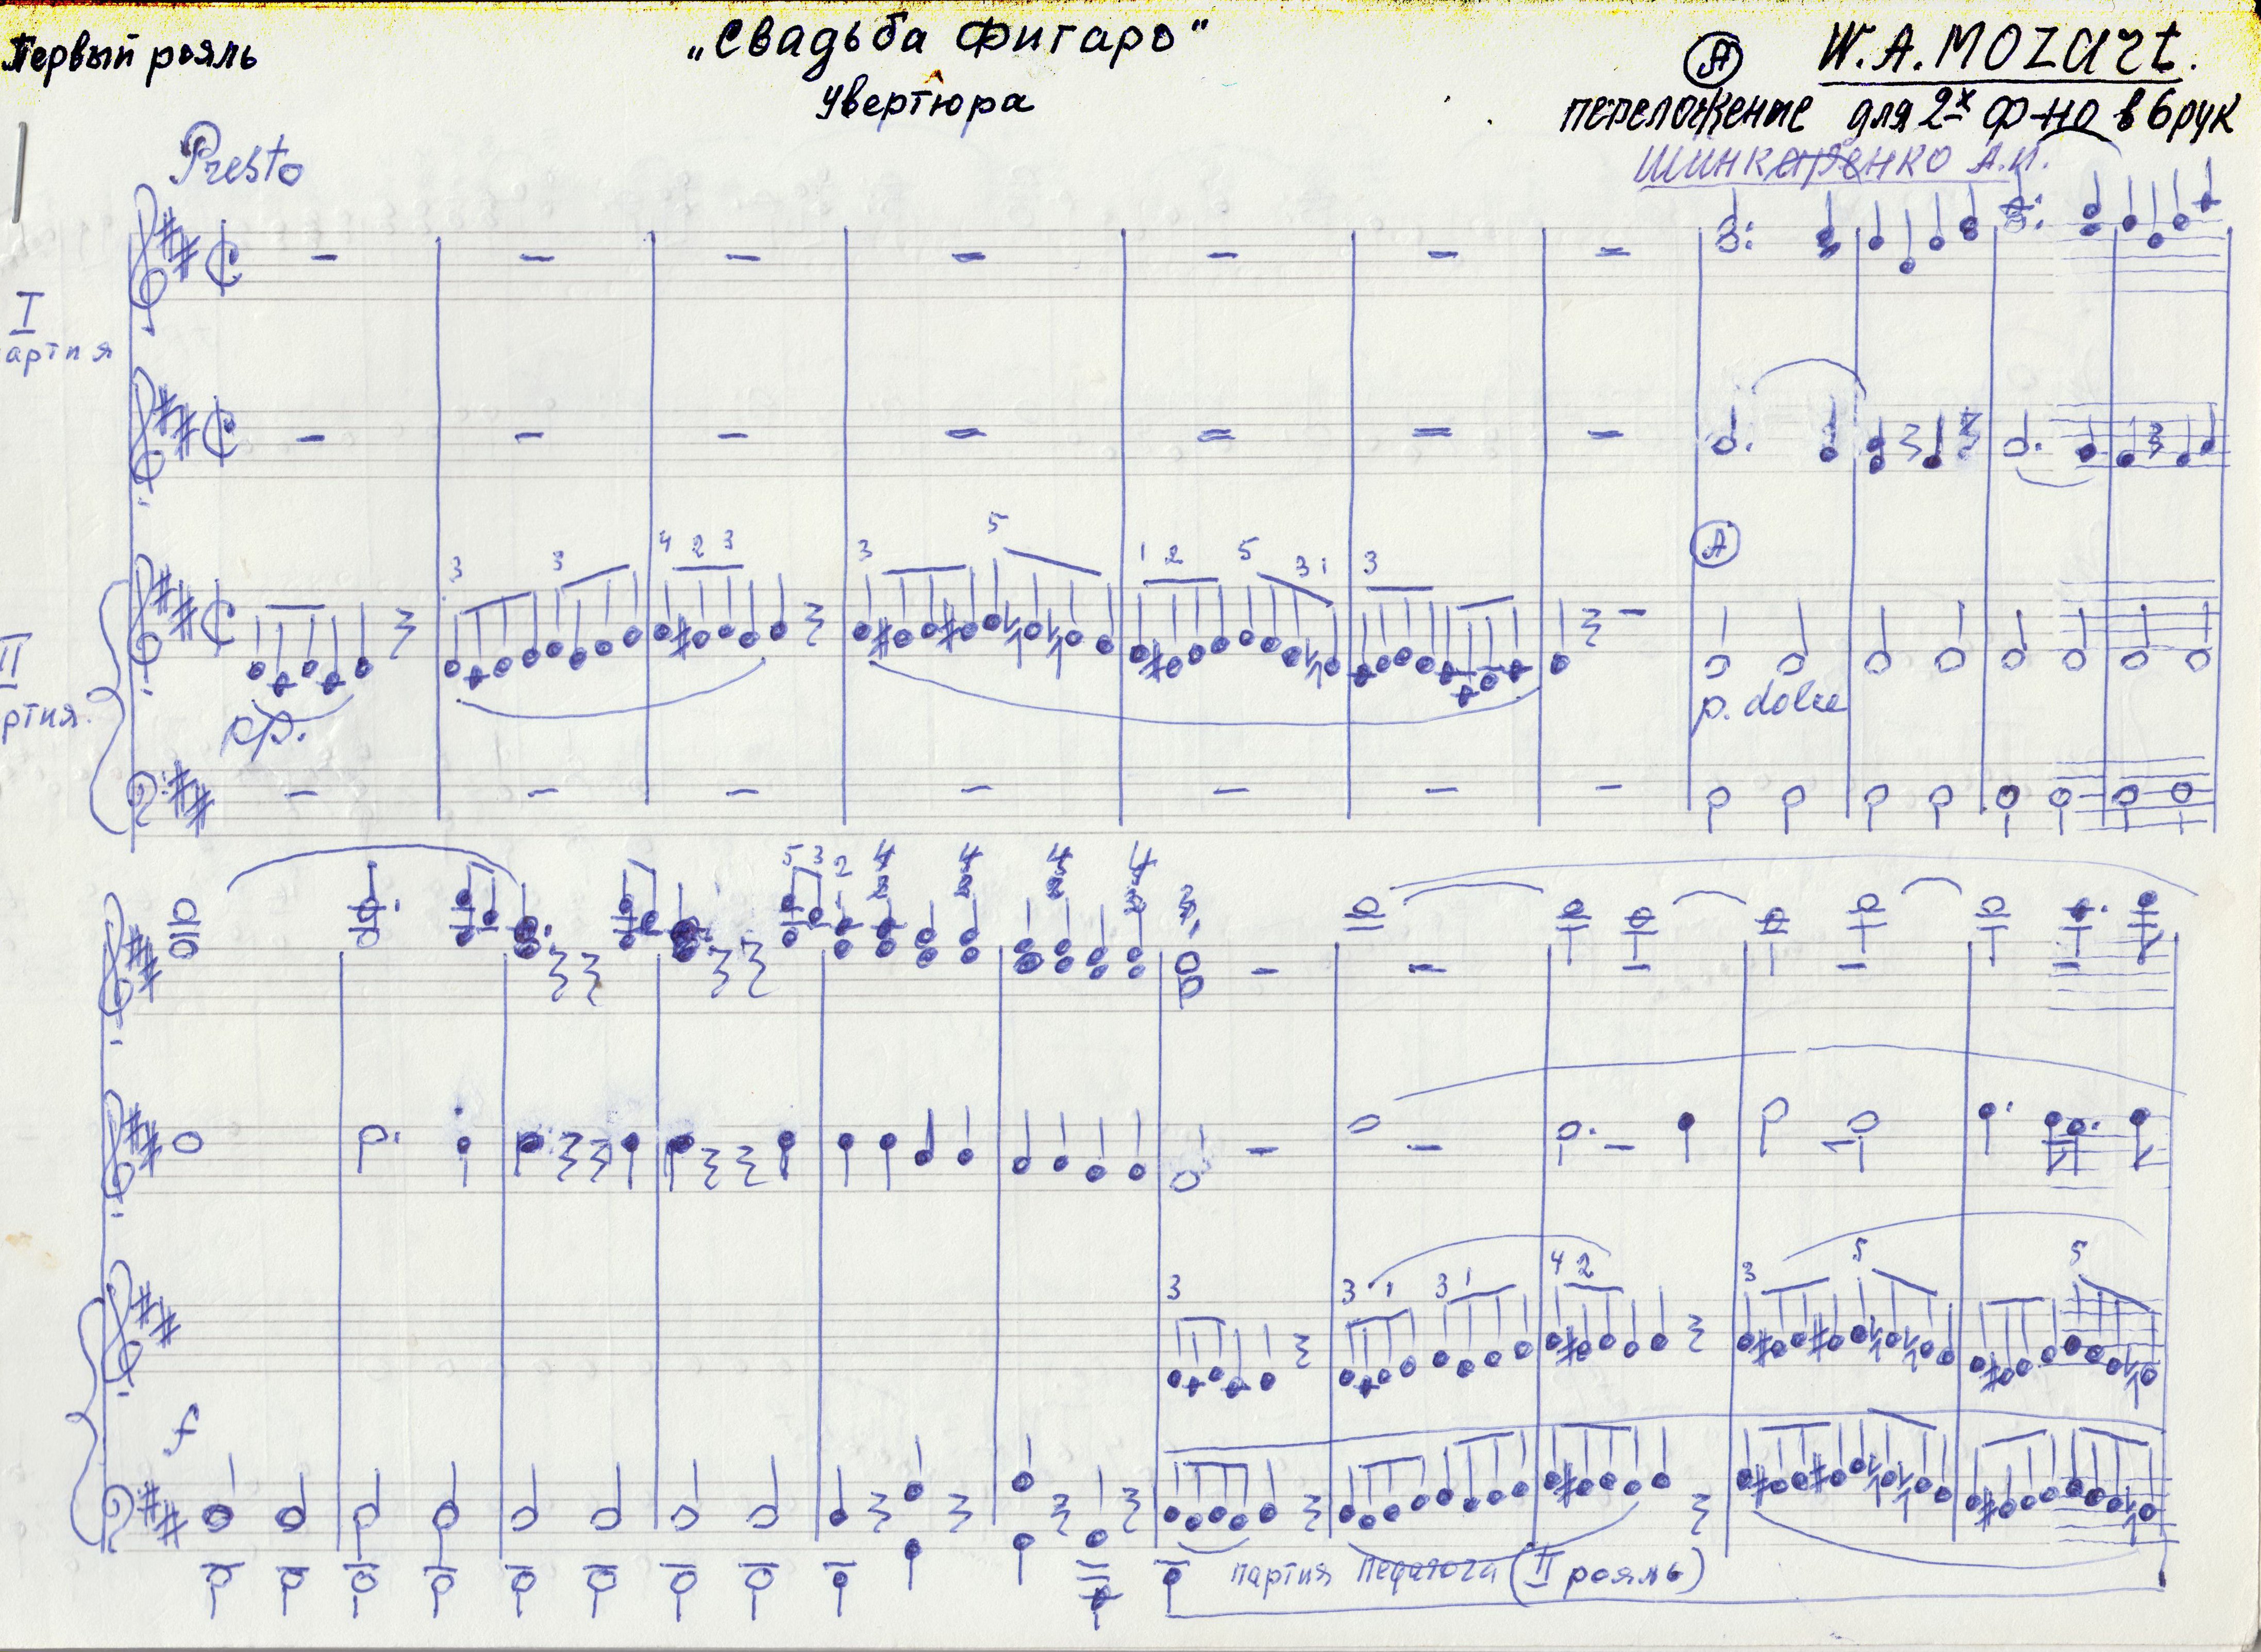 Первый рояль
„Свадьба Фигаро"
Увертюра
А
W.A.MOZART.
переложение для 2х ф-но в 6 рук
Шинкаренко А.И.
Presto
I
артия
3 3 4 2 3 3 5 1 2 5 3 1 3
А
II
ртия.
pp.
p. dolce
5 3 2 4 4 4 4
3
3 3 1 3 1 4 2 3 5 5
f
партия педагога (II рояль)